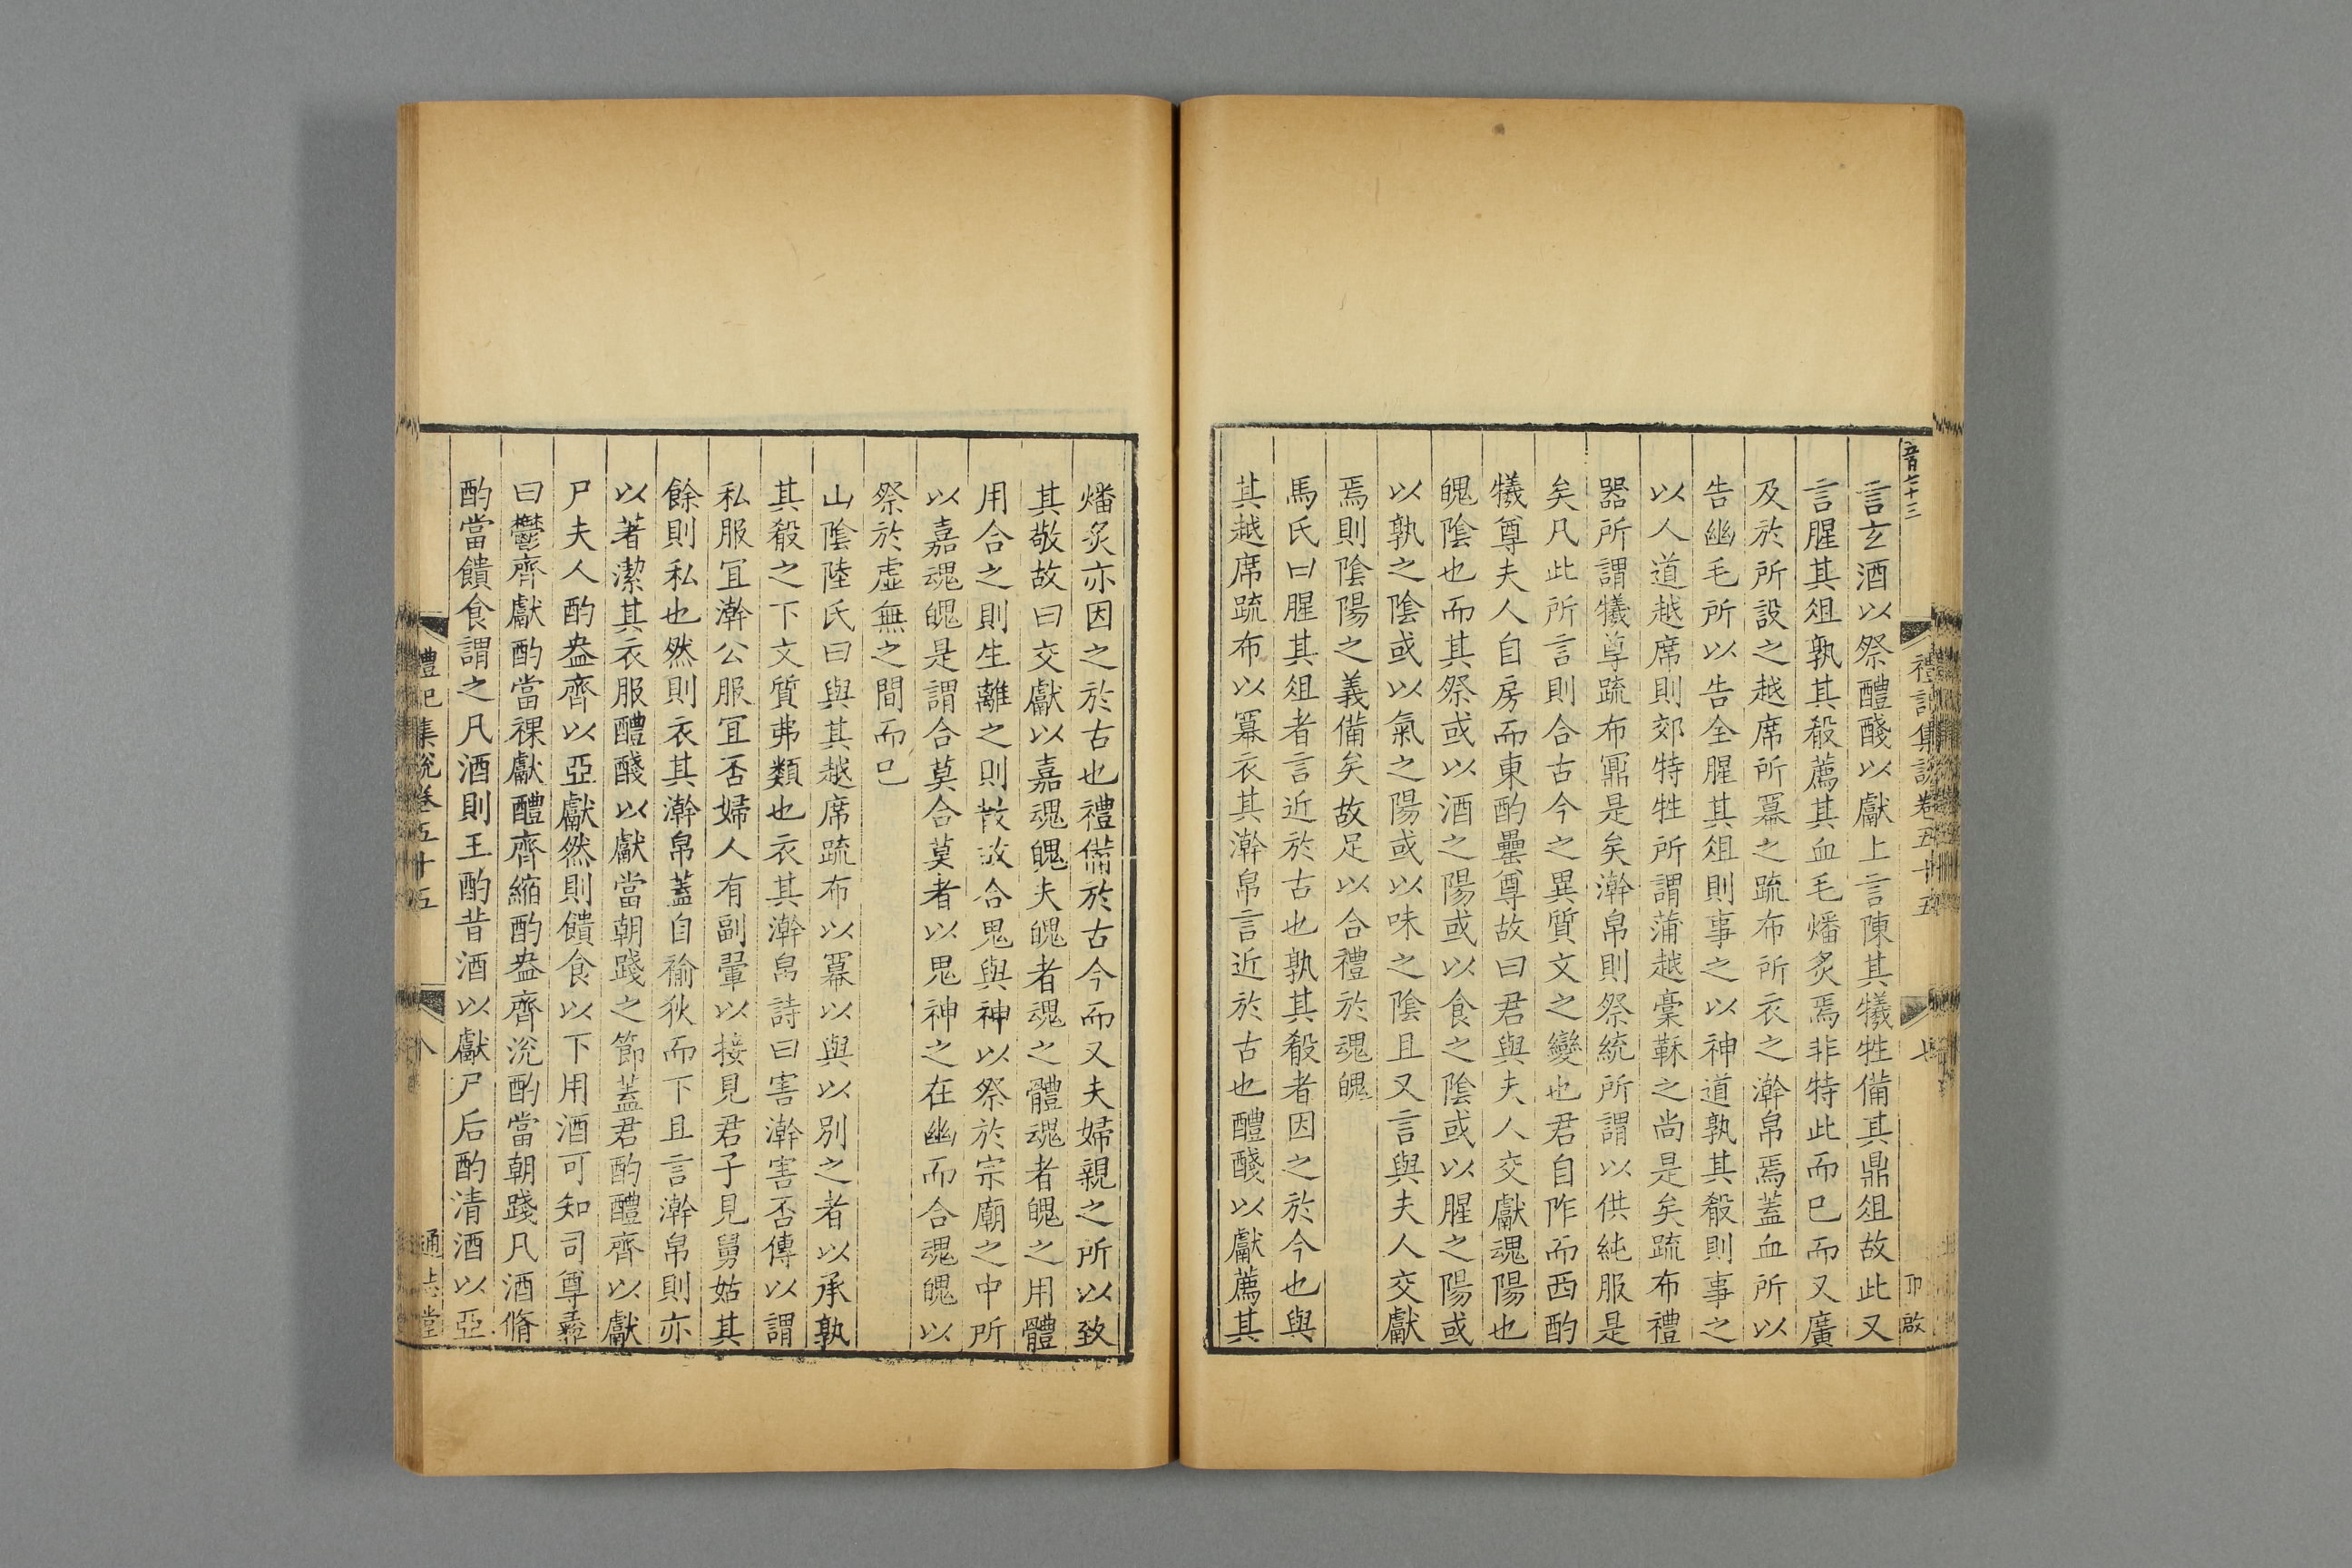 言玄酒以祭醴醆以獻上言陳其犧牲備其鼎俎故此又
言腥其俎孰其殽薦其血毛燔炙焉非特此而已而又廣
及於所設之越席所冪之疏布所衣之澣帛焉蓋血所以
告幽毛所以告全腥其俎則事之以神道孰其殽則事之
以人道越席則郊特牲所謂蒲越稾鞂之尚是矣疏布禮
器所謂犧尊疏布鼏是矣澣帛則祭統所謂以供純服是
矣凡此所言則合古今之異質文之變也君自阼而西酌
犧尊夫人自房而東酌罍尊故曰君與夫人交獻魂陽也
魄陰也而其祭或以酒之陽或以食之陰或以腥之陽或
以孰之陰或以氣之陽或以味之陰且又言與夫人交獻
焉則陰陽之義備矣故足以合禮於魂魄
馬氏曰腥其俎者言近於古也孰其殽者因之於今也與
其越席疏布以冪衣其澣帛言近於古也醴醆以獻薦其
燔炙亦因之於古也禮備於古今而又夫婦親之所以致
其敬故曰交獻以嘉魂魄夫魄者魂之體魂者魄之用體
用合之則生離之則散故合鬼與神以祭於宗廟之中所
以嘉魂魄是謂合莫合莫者以鬼神之在幽而合魂魄以
祭於虛無之間而已
山陰陸氏曰與其越席疏布以冪以與以別之者以承孰
其殽之下文質弗類也衣其澣帛詩曰害澣害否傳以謂
私服宜澣公服宜否婦人有副翬以接見君子見舅姑其
餘則私也然則衣其澣帛蓋自褕狄而下且言澣帛則亦
以著潔其衣服醴醆以獻當朝踐之節蓋君酌醴齊以獻
尸夫人酌盎齊以亞獻然則饋食以下用酒可知司尊彝
曰鬱齊獻酌當祼獻醴齊縮酌盎齊涗酌當朝踐凡酒脩
酌當饋食謂之凡酒則王酌昔酒以獻尸后酌清酒以亞
禮記集說卷五十五
八
通志堂
禮記集說卷五十五
七